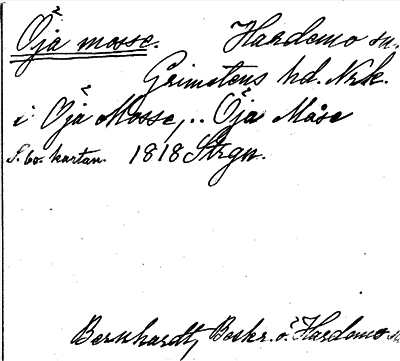 Öja mosse. Hardemo sn.
Grimstens hd. Nrk.
i Öja Mosse, .. Öja Måse
S. 60. kartan. 1818 Strgn.
Bernhardt, Beskr. ö. Hardemo